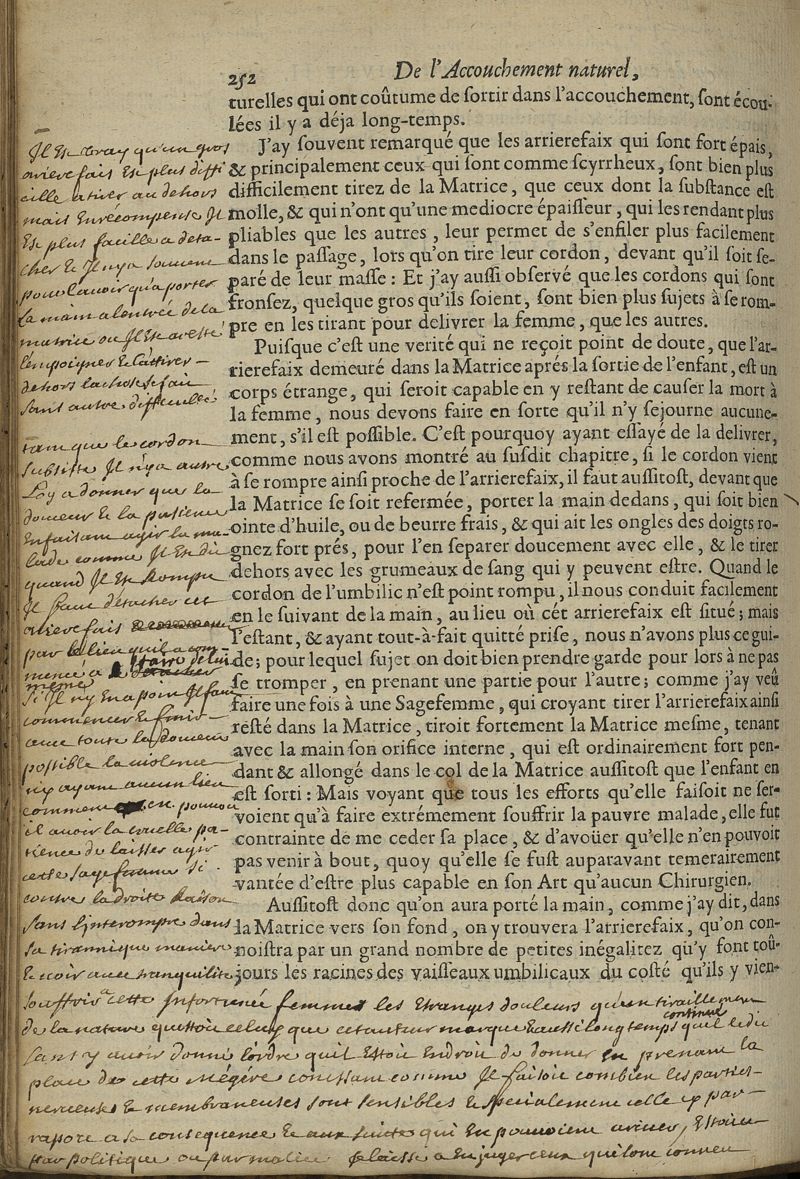 252
De l'Accouchement naturel,
turelles qui ont coûtume de sortir dans l'accouchement, sont écou-
lées il y a déja long-temps.
J'ay souvent remarqué que les arrierefaix qui sont fort épais,
& principalement ceux qui sont comme scyrrheux, sont bien plus
difficilement tirez de la Matrice, que ceux dont la substance est
molle, & qui n'ont qu'une mediocre épaisseur, qui les rendant plus
pliables que les autres, leur permet de s'enfiler plus facilement
dans le passage, lors qu'on tire leur cordon, devant qu'il soit se-
paré de leur masse : Et j'ay aussi observé que les cordons qui sont
fronsez, quelque gros qu'ils soient, sont bien plus sujets à se rom-
pre en les tirant pour delivrer la femme, que les autres.
Puisque c'est une verité qui ne reçoit point de doute, que l'ar-
rierefaix demeuré dans la Matrice aprés la sortie de l'enfant, est un
corps étrange, qui seroit capable en y restant de causer la mort à
la femme, nous devons faire en sorte qu'il n'y sejourne aucune-
ment, s'il est possible. C'est pourquoy ayant essayé de la delivrer,
comme nous avons montré au susdit chapitre, si le cordon vient
à se rompre ainsi proche de l'arrierefaix, il faut aussitost, devant que
la Matrice se soit refermée, porter la main dedans, qui soit bien
ointe d'huile, ou de beurre frais, & qui ait les ongles des doigts ro-
gnez fort prés, pour l'en separer doucement avec elle, & le tirer
dehors avec les grumeaux de sang qui y peuvent estre. Quand le
cordon de l'umbilic n'est point rompu, il nous conduit facilement
en le suivant de la main, au lieu où cét arrierefaix est situé; mais
l'estant, & ayant tout-à-fait quitté prise, nous n'avons plus ce gui-
de; pour lequel sujet on doit bien prendre garde pour lors à ne pas
se tromper, en prenant une partie pour l'autre; comme j'ay veû
faire une fois à une Sagefemme, qui croyant tirer l'arrierefaix ainsi
resté dans la Matrice, tiroit fortement la Matrice mesme, tenant
avec la main son orifice interne, qui est ordinairement fort pen-
dant & allongé dans le col de la Matrice aussitost que l'enfant en
est sorti : Mais voyant que tous les efforts qu'elle faisoit ne ser-
voient qu'à faire extrémement souffrir la pauvre malade, elle fut
contrainte de me ceder sa place, & d'avoüer qu'elle n'en pouvoit
pas venir à bout, quoy qu'elle se fust auparavant temerairement
vantée d'estre plus capable en son Art qu'aucun Chirurgien.
Aussitost donc qu'on aura porté la main, comme j'ay dit, dans
la Matrice vers son fond, on y trouvera l'arrierefaix, qu'on con-
noistra par un grand nombre de petites inégalitez qu'y font toû-
jours les racines des vaisseaux umbilicaux du costé qu'ils y vien-
Il est vray qu'un gros
arierefais est plus diffi
cille a tirer au dehors
mais en recompense Il
est plus facille a deta-
cher & Il n'y a souvent
pour l'avoir qu'a porter
la main a l'entrée de la
matrice ou Il est aresté
l'empoigner & l'attirer
dehors la chose se fait
sans autre difficulté
tant que le cordon
subsiste Il n'y a autre
loy a donner que la
douceur & la patience
en faisant agir la ma-
lade comme Il est dit
quand Il est Rompu
Il faut detacher cet
arierefais
par le lieu qui l'a com-
mencé a
mesme
si Il n'y en a point Il faut
commencer & finir
avec toute la douceur
possible la violence
n'y ayant aucun lieu
comment en pouvoit
il avoir la cruelle pa-
tience de laisser agir
cette sagefemme si
contre la droite Raison
sans l'interompre dans
sa tirannique maniere
& voir avec tranquilité
souffrir a cette Infortunée femme les étranges douleurs
de la nature
sans y avoir donné l'ordre qu'il estoit en droit de donner en prenant la
place de cette mégére
nerveuses & membraneuses sont sensibles & specialement celle cy par
raport a la consequence & aux suites qui en pouvoient ariver,
par politique ou par malice